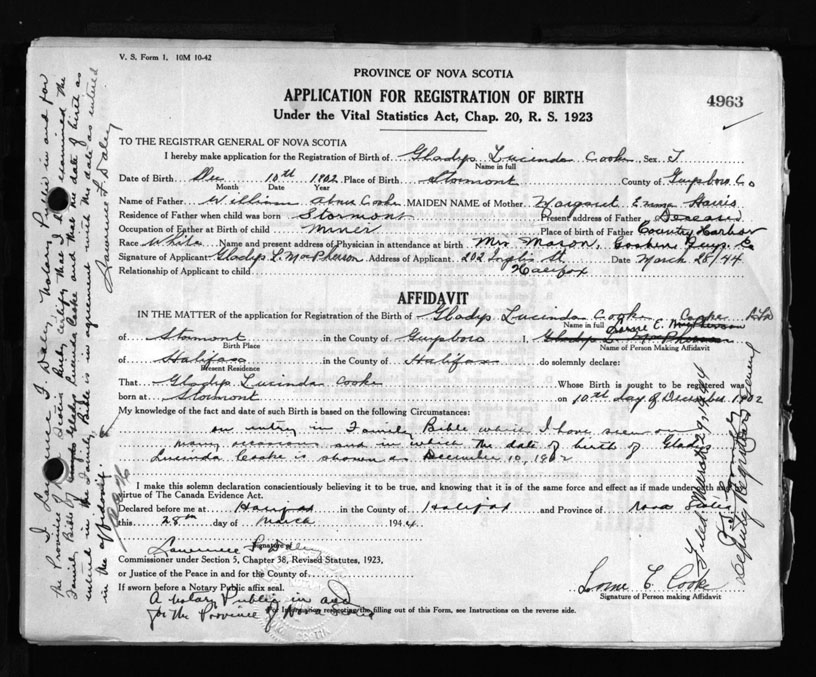 V. S. Form 1. 10M 10-42
PROVINCE OF NOVA SCOTIA
APPLICATION FOR REGISTRATION OF BIRTH
4963
Under the Vital Statistics Act, Chap. 20, R. S. 1923
TO THE REGISTRAR GENERAL OF NOVA SCOTIA
I hereby make application for the Registration of Birth of Gladys Lucinda Cooke Sex F
Name in full
Date of Birth Dec 10th 1902 Place of Birth Stormont County of Guysboro Co
Month Date Year
Name of Father William Abner Cooke MAIDEN NAME of Mother Margaret Emma Harris
Residence of Father when child was born Stormont Present address of Father Deceased
Occupation of Father at Birth of child Miner Place of birth of Father Country Harbor
Race White Name and present address of Physician in attendance at birth Mrs Mason, Goshen Guys. Co
Signature of Applicant Gladys L. MacPherson Address of Applicant 202 St. Date March 28/44
Relationship of Applicant to child Halifax
AFFIDAVIT
IN THE MATTER of the application for Registration of the Birth of Gladys Lucinda Cooke
Name in full
of Stormont in the County of Guysboro I, Gladys L. McPherson
Birth Place Name of Person Making Affidavit
of Halifax in the County of Halifax do solemnly declare:
Present Residence
That Gladys Lucinda Cooke Whose Birth is sought to be registered was
born at Stormont on 10th Day of December 1902
My knowledge of the fact and date of such Birth is based on the following Circumstances:
on entry in Family Bible which I have seen on
many occasions and in which the date of birth of Gladys
Lucinda Cooke is shown as December 10, 1902
I make this solemn declaration conscientiously believing it to be true, and knowing that it is of the same force and effect as if made under oath and
virtue of The Canada Evidence Act.
Declared before me at Halifax in the County of Halifax and Province of Nova Scotia
this 28th day of March 1944.
Lawrence F. Daley
Signature
Commissioner under Section 5, Chapter 38, Revised Statutes, 1923,
or Justice of the Peace in and for the County of
If sworn before a Notary Public affix seal.
Lorne C Cooke
Signature of Person making Affidavit
A notary Public in and
for the Province of Nova Scotia
For Instruction respecting the filling out of this Form, see Instructions on the reverse side.
I, Lawrence F. Daley, Notary Public in and for
the Province of Nova Scotia hereby certify that I have examined the
Family Bible of Gladys Lucinda Cooke and that the date of birth as
entered in the Family Bible is in agreement with the date as entered
in the affidavit.
Lawrence F. Daley
Filed March 29, 1944
Deputy Registrar General